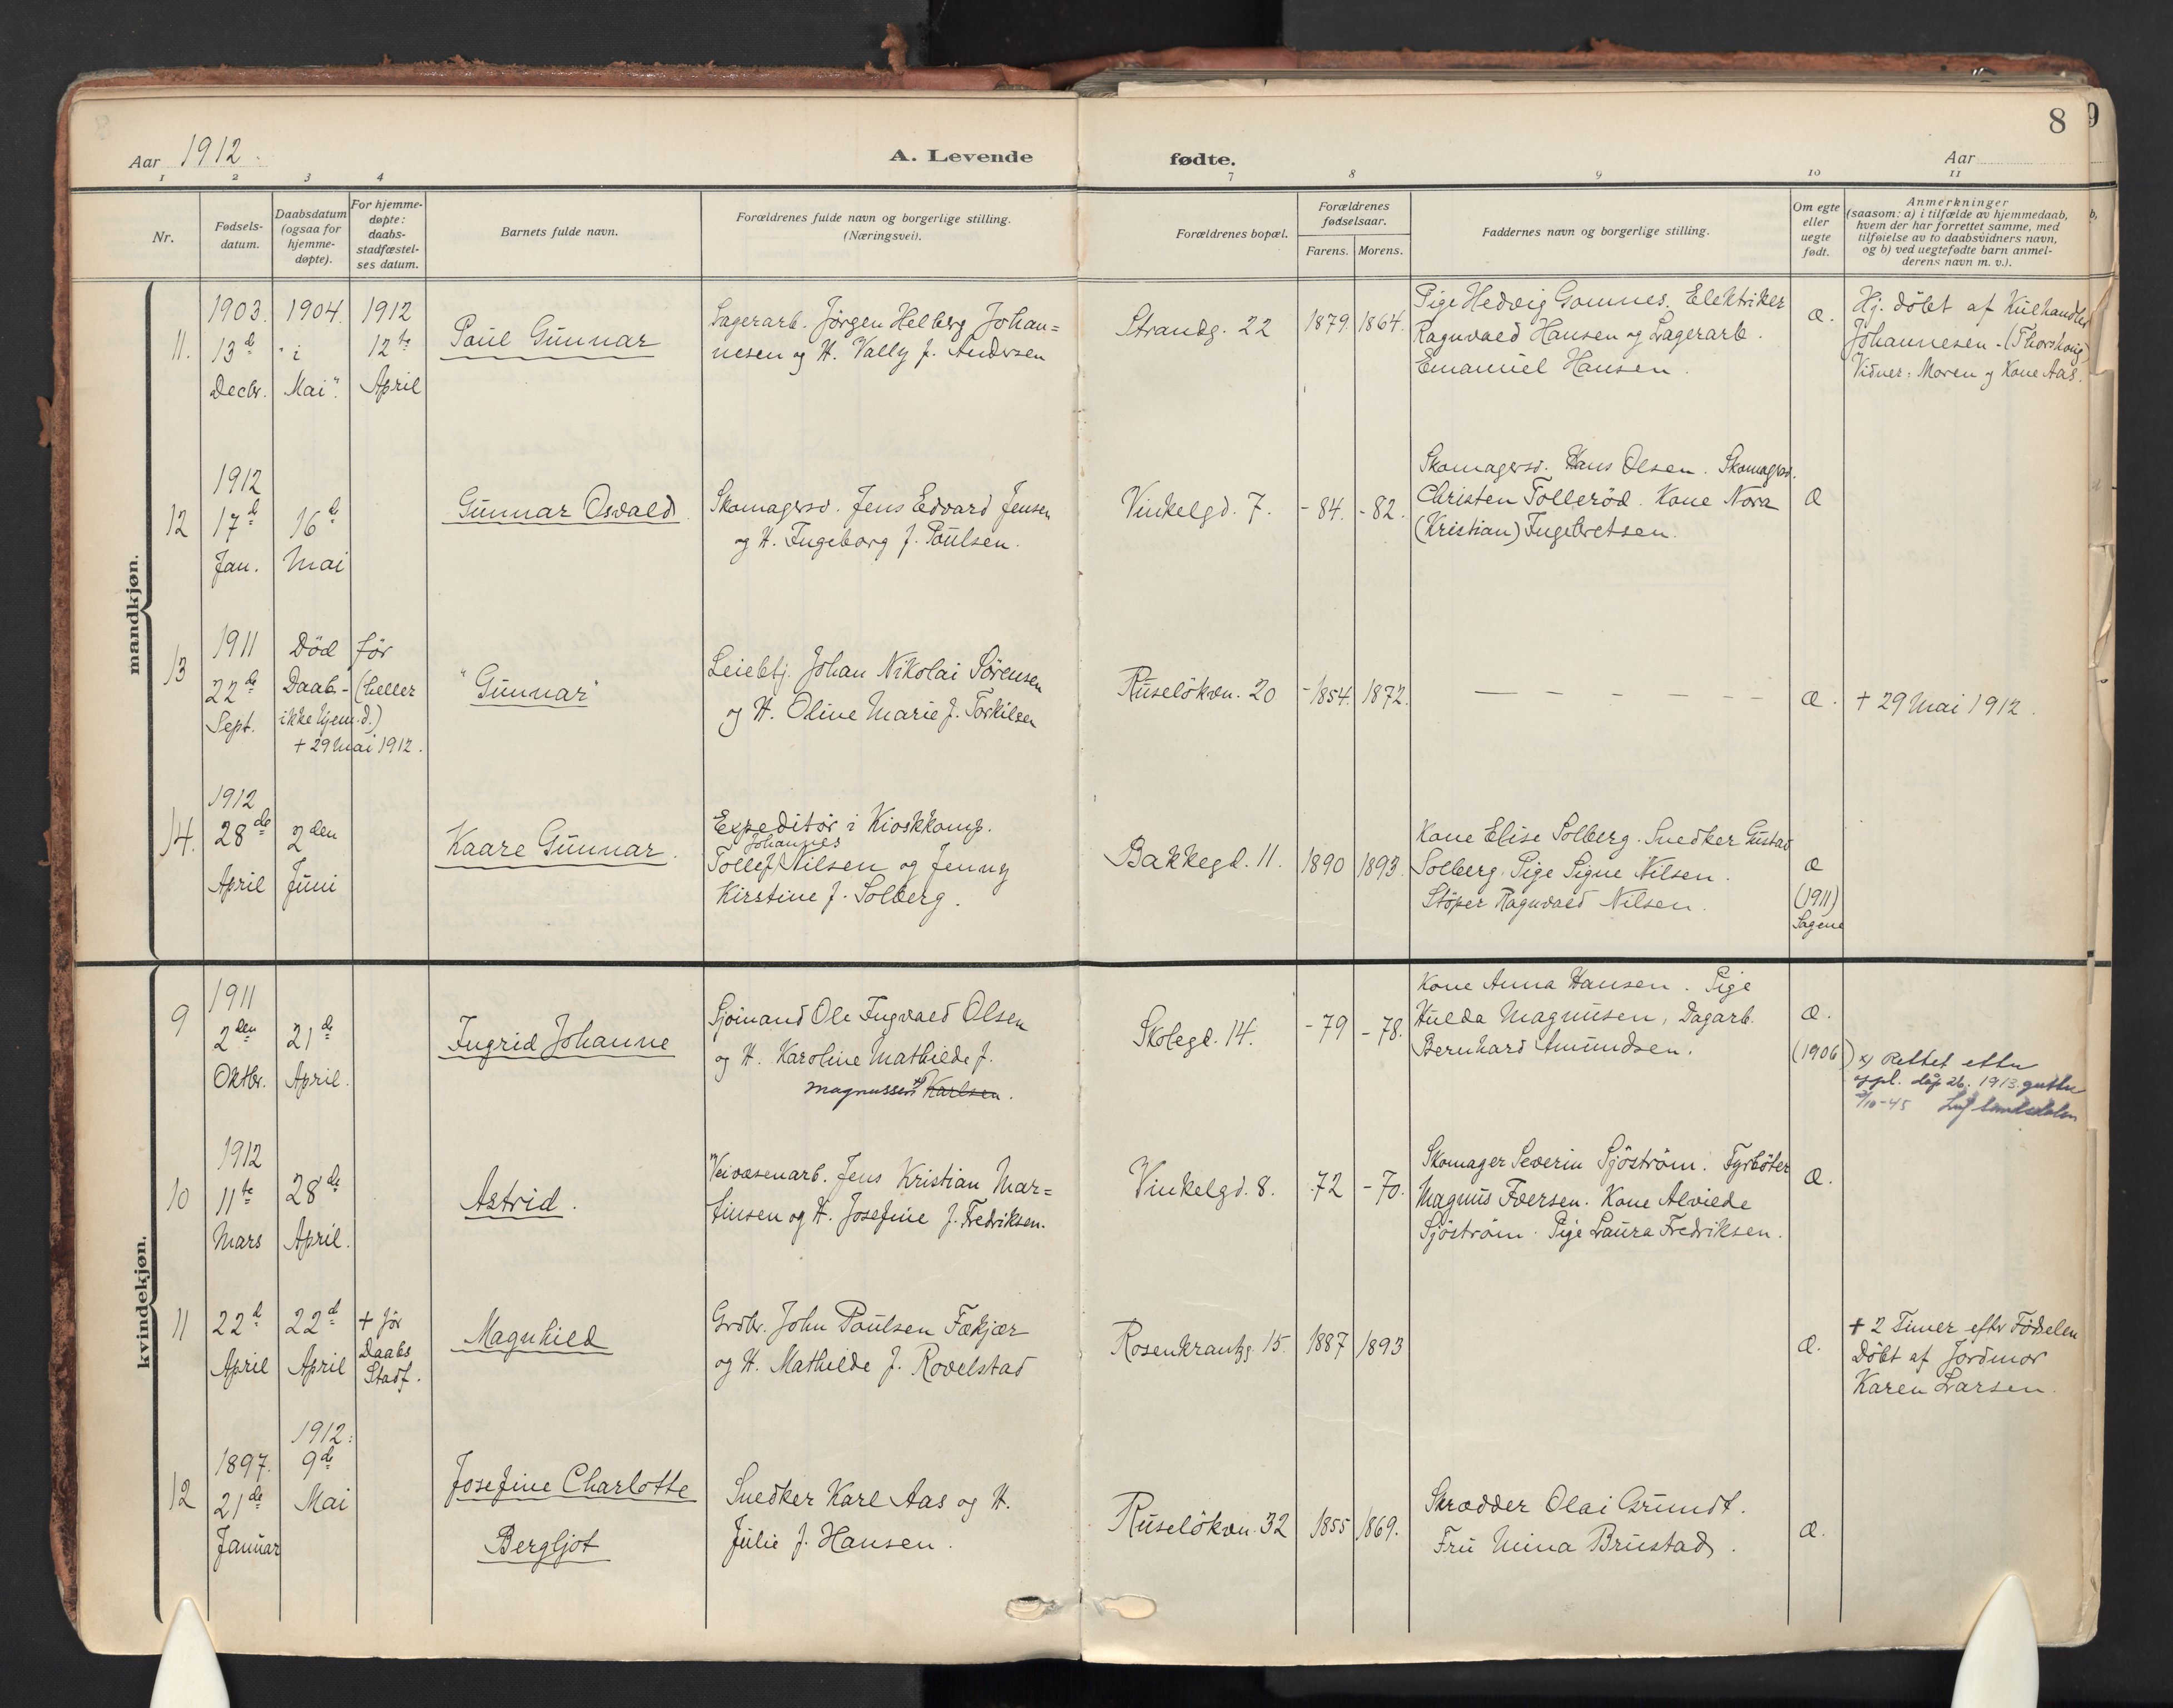 8
Aar 1912.
A. Levende
fødte.
Aar
1 2 3 4 7 8 9 10 11
Nr.
Fødsels-
datum.
Daabsdatum
(ogsaa for
hjemme-
døpte).
For hjemme-
døpte:
daabs-
stadfæstel-
ses datum.
Barnets fulde navn.
Forældrenes fulde navn og borgerlige stilling.
(Næringsvei).
Forældrenes bopæl.
Forældrenes
fødselsaar.
Farens. Morens.
Faddernes navn og borgerlige stilling.
Om egte
eller
uegte
født.
Anmerkninger
(saasom: a) i tilfælde av hjemmedaab,
hvem der har forrettet samme, med
tilføielse av to daabsvidners navn,
og b) ved uegtefødte barn anmel-
derens navn m. v.).
mandkjøn.
11.
1903.
13d
Decbr.
1904.
"i
Mai".
1912
12te
April
Paul Gunnar
Lagerarb. Jørgen Helberg Johan=
nesen og H. Vally f. Andersen
Strandg. 22
1879. 1864.
Pige Hedvig Gomnes. Elektriker
Ragnvald Hansen og Lagerarb.
Emanuel Hansen.
Æ.
Hj. døbt af Kulhandler
Johannesen - (Thorshaug)
Vidner: Moren og Kone Aas.
12
1912
17d
Jan.
16d
Mai
Gunnar Osvald
Skomagersv. Jens Edvard Jensen
og H. Ingeborg f. Paulsen.
Vinkelgd. 7.
- 84. - 82.
Skomagersv. Hans Olsen. Skomagersv.
Christen Tollerød. Kone Nora
(Kristian) Ingebretsen.
Æ
13
1911
22de
Sept.
Död før
Daab - (heller
ikke hjem.d.)
+ 29 Mai 1912.
"Gunnar"
Leiebtj. Johan Nikolai Sørensen
og H. Oline Marie f. Torkilsen
Ruseløkvn. 20
- 1854. 1872.
— — — — — — —
Æ.
+ 29 Mai 1912.
14.
1912
28de
April
2den
Juni
Kaare Gunnar.
Expeditør i Kioskkomp.
Johannes
Tollef Nilsen og Jenny
Kirstine f. Solberg.
Bakkegd. 11.
1890 1893.
Kone Elise Solberg. Snedker Gustav
Solberg. Pige Signe Nilsen.
Støper Ragnvald Nilsen.
Æ
(1911)
Sagene
kvindekjøn.
9
1911
2den
Oktbr.
21de
April.
Ingrid Johanne
Sjømand Ole Ingvald Olsen
og H. Karoline Mathilde f.
Magnussen x) Karlsen.
Skolegd. 14.
- 79 - 78.
Kone Anna Hansen. Pige
Hulda Magnusen, Dagarb.
Bernhard Amundsen.
Æ.
(1906)
x) Rettet efter
oppl. dåp 26. 1913.
/10-45
10
1912
11te
Mars
28de
April.
Astrid.
Veivæsenarb. Jens Kristian Mar=
tinsen og H. Josefine f. Fredriksen.
Vinkelgd. 8.
72 - 70.
Skomager Severin Sjöström. Fyrbøter
Magnus Iversen. Kone Alvilde
Sjöström. Pige Laura Fredriksen.
Æ.
11
22d
April
22d
April
+ før
Daabs
Stadf.
Magnhild
Grdbr. John Paulsen Fækjær
og H. Mathilde f. Rovelstad
Rosenkrantzg. 15.
1887 1893
Æ.
+ 2 Timer efter Fødselen
Døbt af Jordmor
Karen Larsen.
12
1897.
21de
Januar
1912:
9de
Mai
Josefine Charlotte
Bergljot
Snedker Karl Aas og H.
Julie f. Hansen.
Ruseløkvn. 32
1855 1869.
Skrædder Olai Grundt.
Fru Mina Brustad.
Æ.